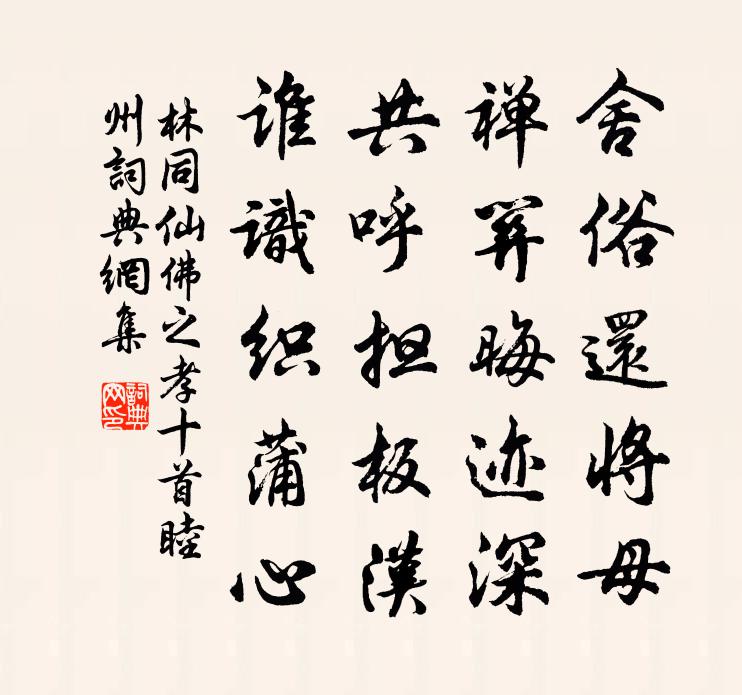 舍俗還将母
禅关晦迹深
共呼担板漢
谁識织蒲心
林同仙佛之孝十首睦
州詞典網集
詞典网印